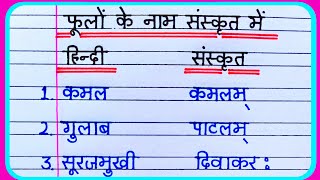 फूलों के नाम संस्कृत में
हिन्दी संस्कृत
1. कमल कमलम्
2. गुलाब पाटलम्
3. सूरजमुखी दिवाकर :